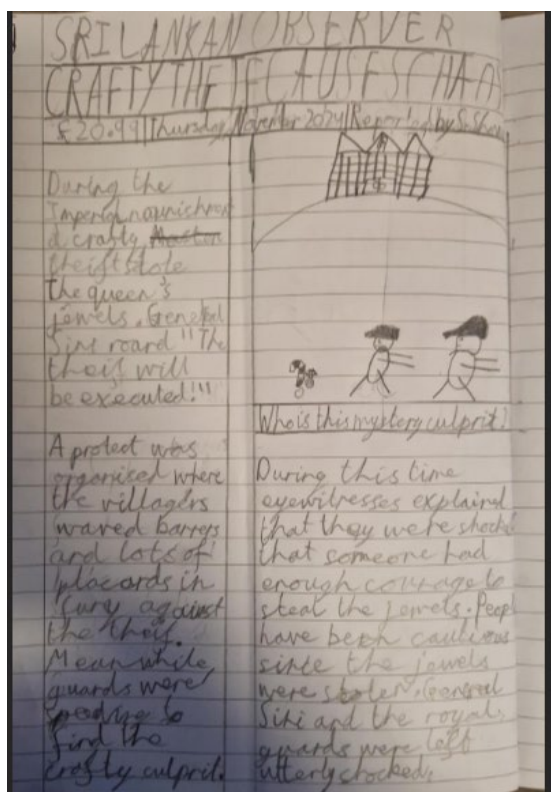 SRI LANKAN OBSERVER
CRAFTY THEIF CAUSES CHAOS
£20.99 Thursday November 2024 Reported by
During the
Imperial
a crafty
theift stole
the queen's
jewels. General
Siri roard "The
theif will
be executed!"
A protest was
organised where
the villagers
waved banners
and lots of
placards in
fury against
the theif.
Meanwhile
guards were
to
find the
crafty culprit.
Who is this mystery culprit?
During this time
eyewitnesses explained
that they were shocked
that someone had
enough courage to
steal the jewels. Peopl
have been cautious
since the jewels
were stolen. General
Siri and the royal
guards were left
utterly shocked.